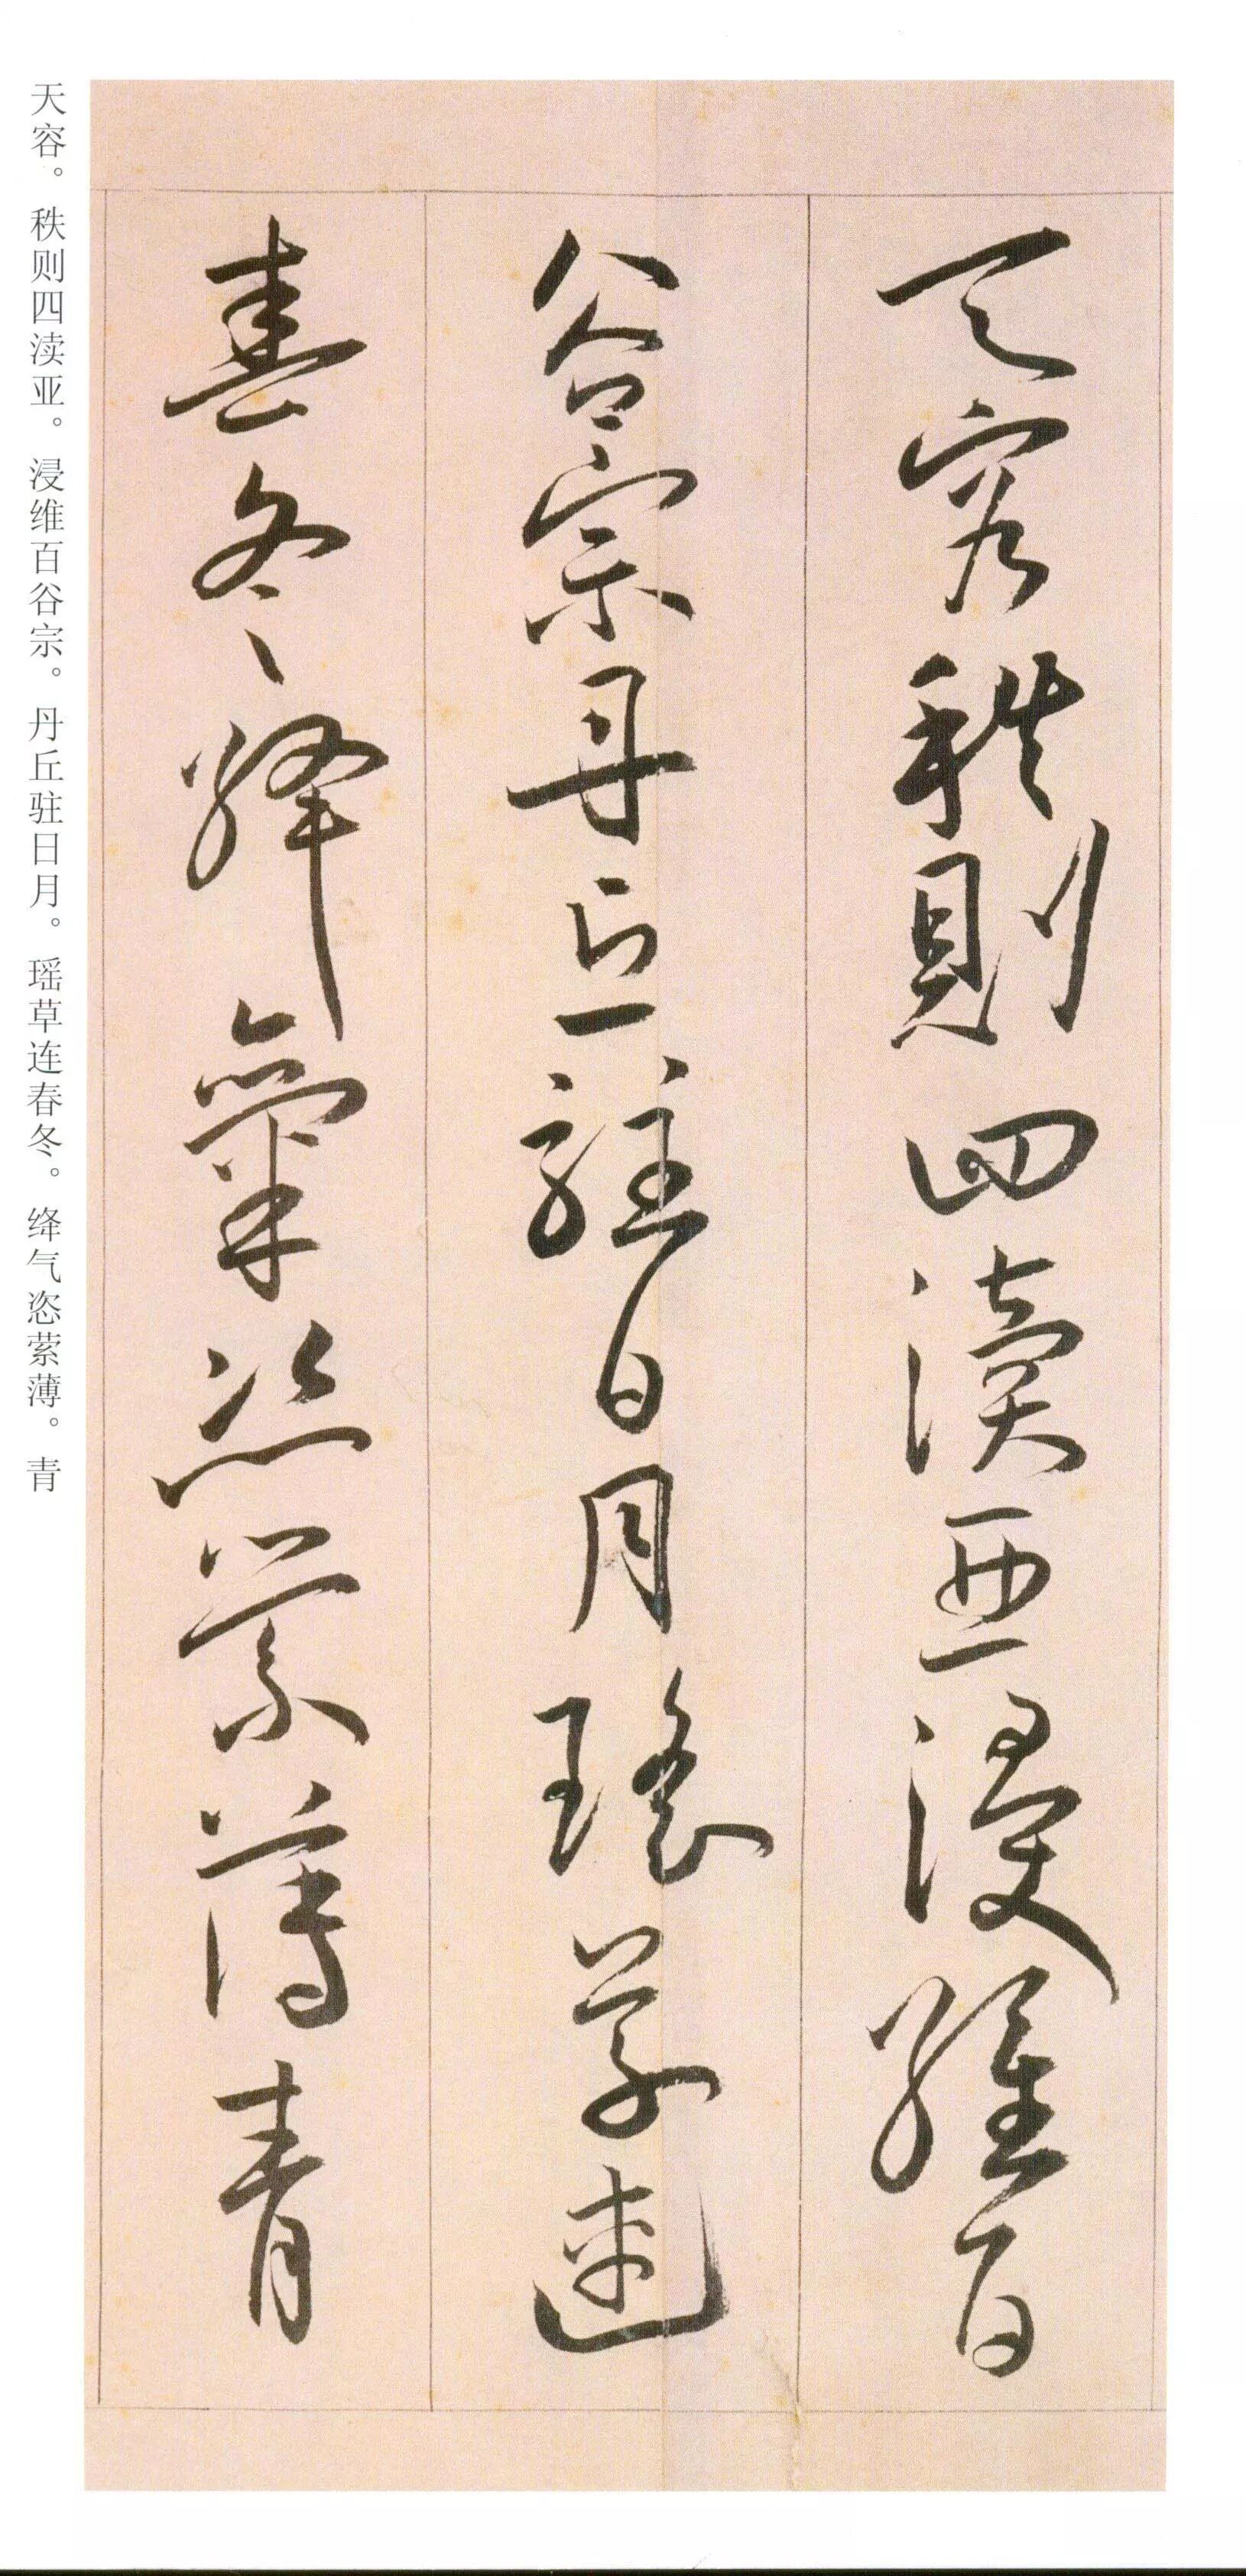 天容秩則四瀆亞浸維百
谷宗丹丘駐日月瑤草連
春冬絳氣恣縈薄青
天容。秩则四渎亚。浸维百谷宗。丹丘驻日月。瑶草连春冬。绛气恣萦薄。青